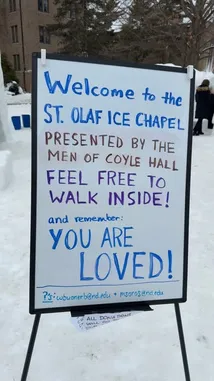 Welcome to the
ST. OLAF ICE CHAPEL
PRESENTED BY THE
MEN OF COYLE HALL
FEEL FREE TO
WALK INSIDE!
and remember:
YOU ARE
LOVED!